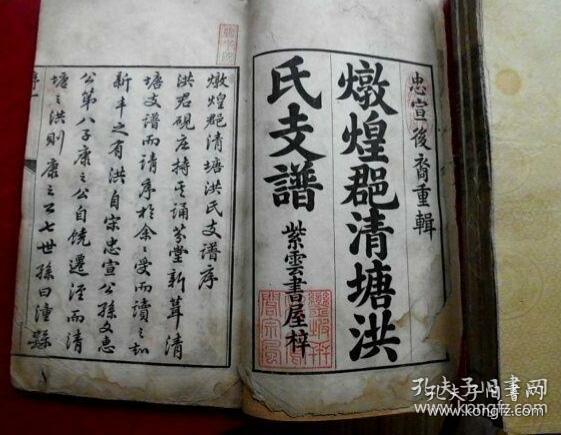 忠宣後裔重輯
燉煌郡清塘洪
氏支譜
紫雲書屋梓
燉煌郡清塘洪氏支譜序
洪君硯庄持其誦芬堂新葺清
塘支譜而請序於余余受而讀之知
新丰之有洪自宋忠宣公孫文惠
公第八子康之公自饒遷涇而清
塘之洪則康之公七世孫曰潼縣
序一
孔夫子旧书网
www.kongfz.com